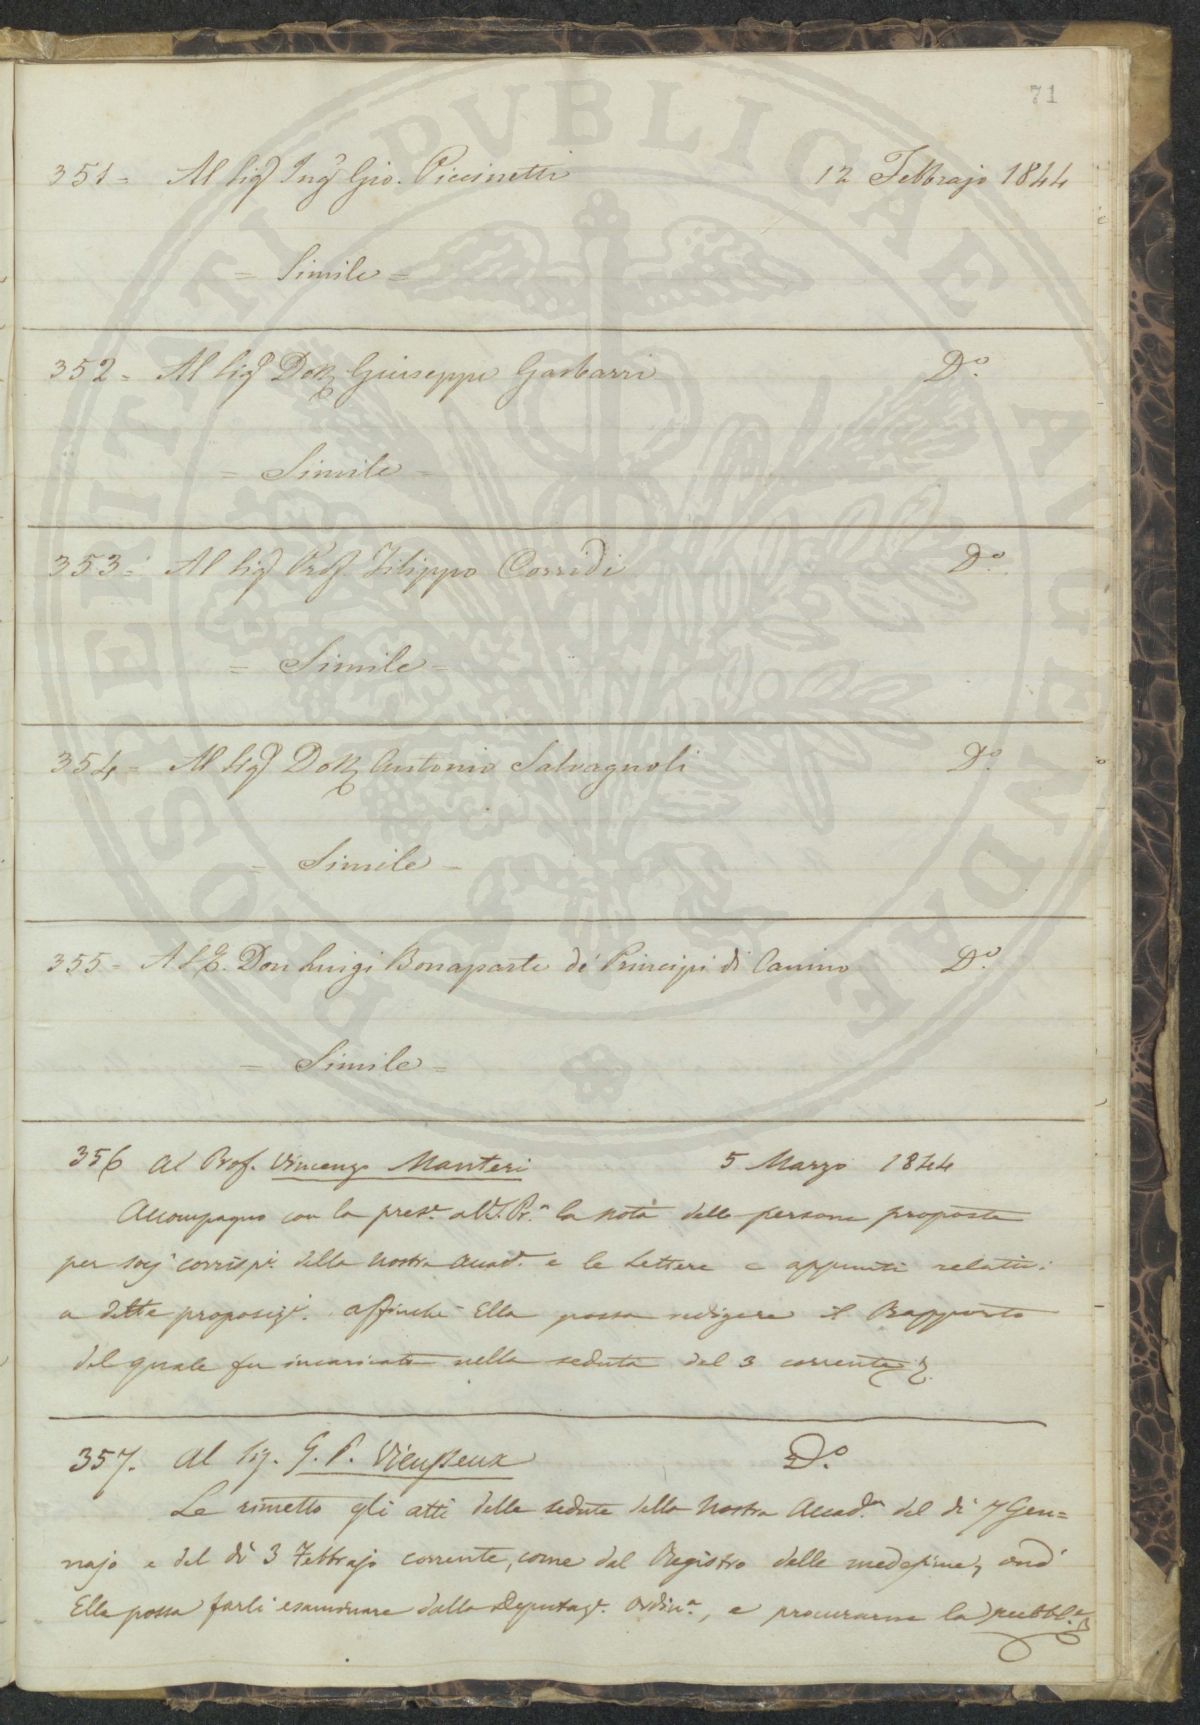 71
351= Al Sigr Ingr Gio. Piccinetti 12 Febbrajo 1844
= Simile =
352= Al Sigr Dott. Giuseppe Gasbarri Do.
= Simile =
353= Al Sigr Prof. Filippo Corridi Do.
= Simile =
354= Al Sigr Dott. Antonio Salvagnoli Do.
= Simile =
355= A S.E. Don Luigi Bonaparte de' Principi di Canino Do.
= Simile =
356 Al Prof. Vincenzo Manteri 5 Marzo 1844
Accompagno con la prese. all. la nota delle persone proposte
per socj corrispi. della nostra Accad.a e le Lettere e appunti relativi
a dette proposizi. affinchè Ella possa redigere il Rapporto
del quale fu incaricato nella seduta del 3 corrente
357. Al Sig. G. P. Vieusseux Do.
Le rimetto gli atti delle sedute della nostra Accad.a del dì 7 Gen=
najo e del dì 3 Febbrajo corrente, come dal Registro delle medesime, ond'
Ella possa farli esaminare dalla Deputaze. ordina., e procurarne la pubbl.e
PROSPERITATI PVBLICAE AVGENDAE